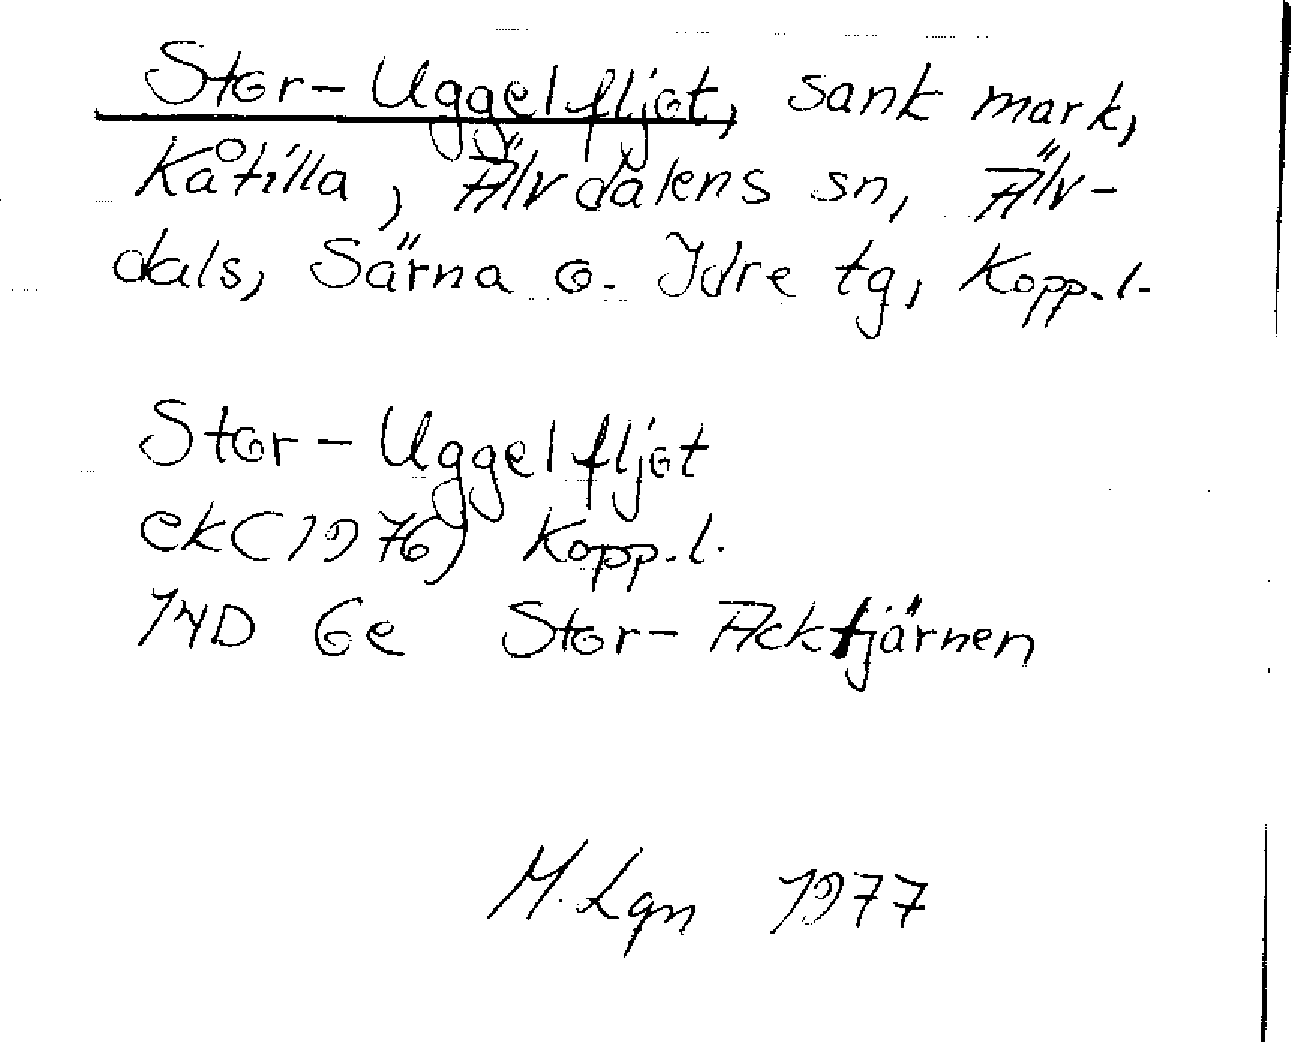 Stor-Uggelfljot, sank mark,
Kåtilla, Älvdalens sn, Älv-
dals, Särna o. Idre tg, Kopp.l.
Stor-Uggelfljot
ek(1976) Kopp.l.
14D 6e Stor-Acktjärnen
M.Lgn 1977